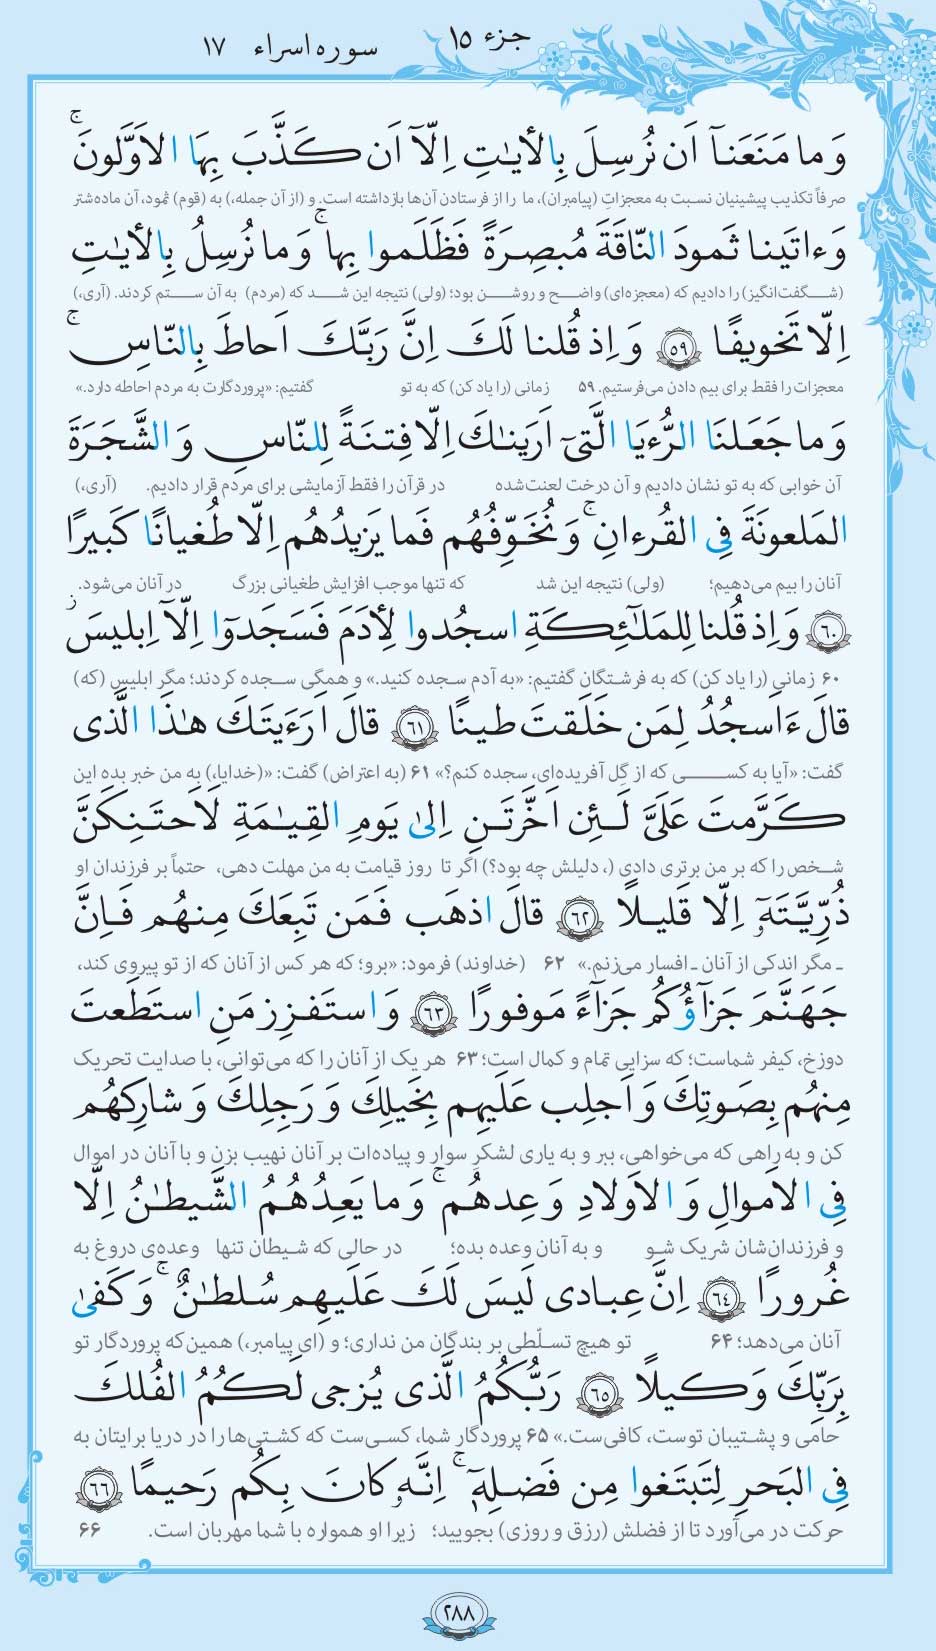 جزء ۱۵
سوره اسراء ۱۷
وَ ما مَنَعَنآ اَن نُرسِلَ بِالأیٰتِ اِلّآ اَن کَذَّبَ بِهَا الاَوَّلونَ ۚ
صرفاً تکذیب پیشینیان نسبت به معجزاتِ (پیامبران)، ما را از فرستادن آن‌ها بازداشته است. و (از آن جمله،) به (قوم) ثمود، آن ماده‌شتر
وَ ءاتَینا ثَمودَ النّاقَةَ مُبصِرَةً فَظَلَموا بِها ۚ وَ ما نُرسِلُ بِالأیٰتِ
(شگفت‌انگیز) را دادیم که (معجزه‌ای) واضح و روشن بود؛ (ولی) نتیجه این شد که (مردم) به آن ستم کردند. (آری،)
اِلّا تَخویفًا ﴿٥٩﴾ وَ اِذ قُلنا لَکَ اِنَّ رَبَّکَ اَحاطَ بِالنّاسِ ۚ
معجزات را فقط برای بیم دادن می‌فرستیم. ۵۹ زمانی (را یاد کن) که به تو گفتیم: «پروردگارت به مردم احاطه دارد.»
وَ ما جَعَلنَا الرُّءیَا الَّتیٓ اَرَینٰکَ اِلّا فِتنَةً لِلنّاسِ وَ الشَّجَرَةَ
آن خوابی که به تو نشان دادیم و آن درخت لعنت‌شده در قرآن را فقط آزمایشی برای مردم قرار دادیم. (آری،)
المَلعونَةَ فِی القُرءانِ ۚ وَ نُخَوِّفُهُم فَما یَزیدُهُم اِلّا طُغیانًا کَبیرًا
آنان را بیم می‌دهیم؛ (ولی) نتیجه این شد که تنها موجب افزایش طغیانی بزرگ در آنان می‌شود.
﴿٦٠﴾ وَ اِذ قُلنا لِلمَلٰٓئِکَةِ اسجُدوا لِأدَمَ فَسَجَدوٓا اِلّآ اِبلیسَ ز
۶۰ زمانی (را یاد کن) که به فرشتگان گفتیم: «به آدم سجده کنید.» و همگی سجده کردند؛ مگر ابلیس (که)
قالَ ءَاَسجُدُ لِمَن خَلَقتَ طینًا ﴿٦١﴾ قالَ اَرَءَیتَکَ هٰذَا الَّذی
گفت: «آیا به کسی که از گِل آفریده‌ای، سجده کنم؟» ۶۱ (به اعتراض) گفت: «(خدایا،) به من خبر بده این
کَرَّمتَ عَلَیَّ لَئِن اَخَّرتَنِ اِلیٰ یَومِ القِیٰمَةِ لَاَحتَنِکَنَّ
شخص را که بر من برتری دادی (، دلیلش چه بود؟) اگر تا روز قیامت به من مهلت دهی، حتماً بر فرزندان او
ذُرِّیَّتَهٗٓ اِلّا قَلیلًا ﴿٦٢﴾ قالَ اذهَب فَمَن تَبِعَکَ مِنهُم فَاِنَّ
ـ مگر اندکی از آنان ـ افسار می‌زنم.» ۶۲ (خداوند) فرمود: «برو؛ که هر کس از آنان که از تو پیروی کند،
جَهَنَّمَ جَزآؤُکُم جَزآءً مَوفورًا ﴿٦٣﴾ وَ استَفزِز مَنِ استَطَعتَ
دوزخ، کیفر شماست؛ که سزایی تمام و کمال است؛ ۶۳ هر یک از آنان را که می‌توانی، با صدایت تحریک
مِنهُم بِصَوتِکَ وَ اَجلِب عَلَیهِم بِخَیلِکَ وَ رَجِلِکَ وَ شارِکهُم
کن و به راهی که می‌خواهی، ببر و به یاری لشکر سوار و پیاده‌ات بر آنان نهیب بزن و با آنان در اموال
فِی الاَموالِ وَ الاَولادِ وَ عِدهُم ۚ وَ ما یَعِدُهُمُ الشَّیطٰنُ اِلّا
و فرزندان‌شان شریک شو و به آنان وعده بده؛ در حالی که شیطان تنها وعده‌ی دروغ به
غُرورًا ﴿٦٤﴾ اِنَّ عِبادی لَیسَ لَکَ عَلَیهِم سُلطٰنٌ ۚ وَ کَفیٰ
آنان می‌دهد؛ ۶۴ تو هیچ تسلّطی بر بندگان من نداری؛ و (ای پیامبر،) همین‌که پروردگار تو
بِرَبِّکَ وَکیلًا ﴿٦٥﴾ رَبُّکُمُ الَّذی یُزجی لَکُمُ الفُلکَ
حامی و پشتیبان توست، کافی‌ست.» ۶۵ پروردگار شما، کسی‌ست که کشتی‌ها را در دریا برایتان به
فِی البَحرِ لِتَبتَغوا مِن فَضلِهٖٓ ۚ اِنَّهٗ کانَ بِکُم رَحیمًا ﴿٦٦﴾
حرکت در می‌آورد تا از فضلش (رزق و روزی) بجویید؛ زیرا او همواره با شما مهربان است. ۶۶
۲۸۸